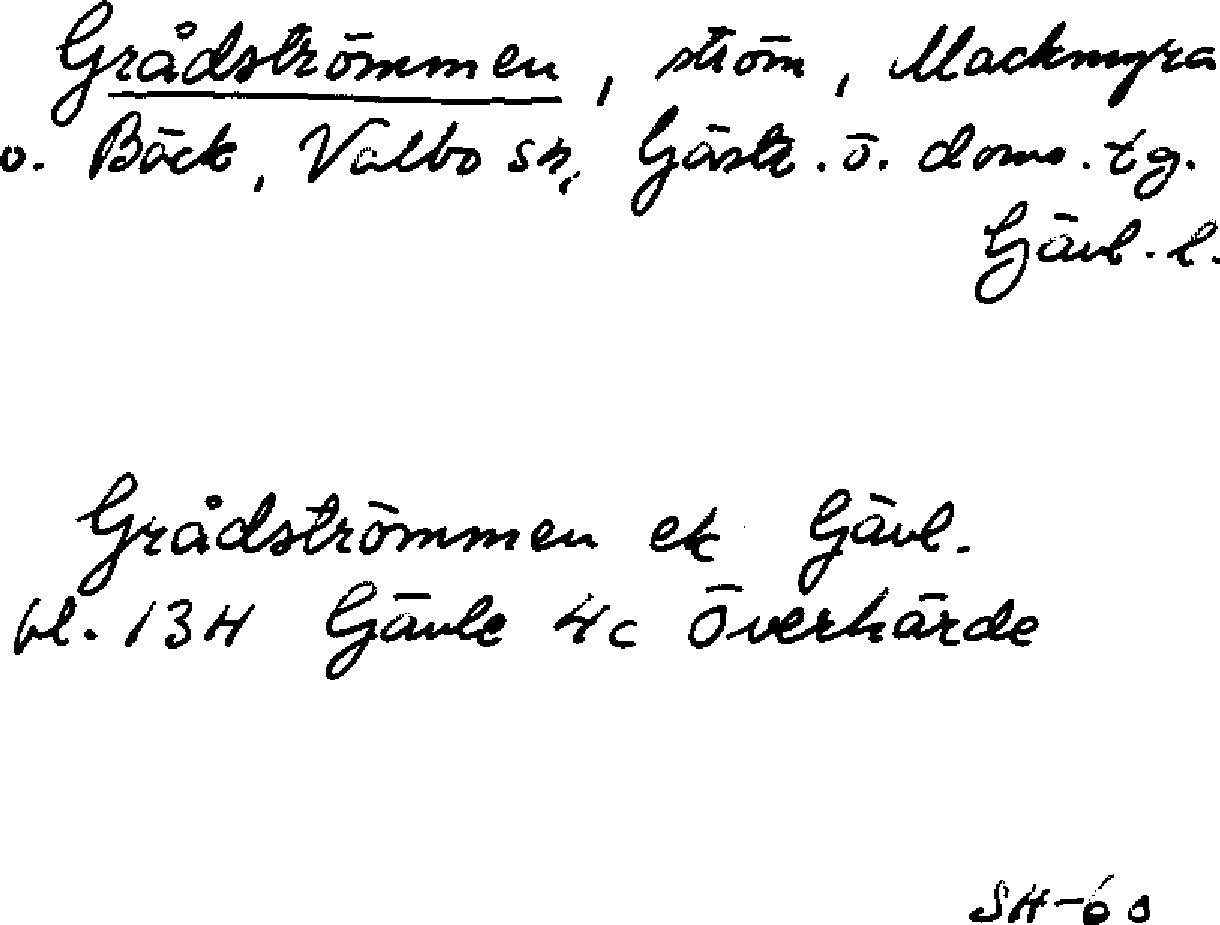 Grådströmmen, ström, Mackmyra
o. Bäck, Valbo sn, Gästr. ö. doms. tg.
Gävl. l.
Grådströmmen ek Gävl.
bl. 13H Gävle 4c Överhärde
SH-60